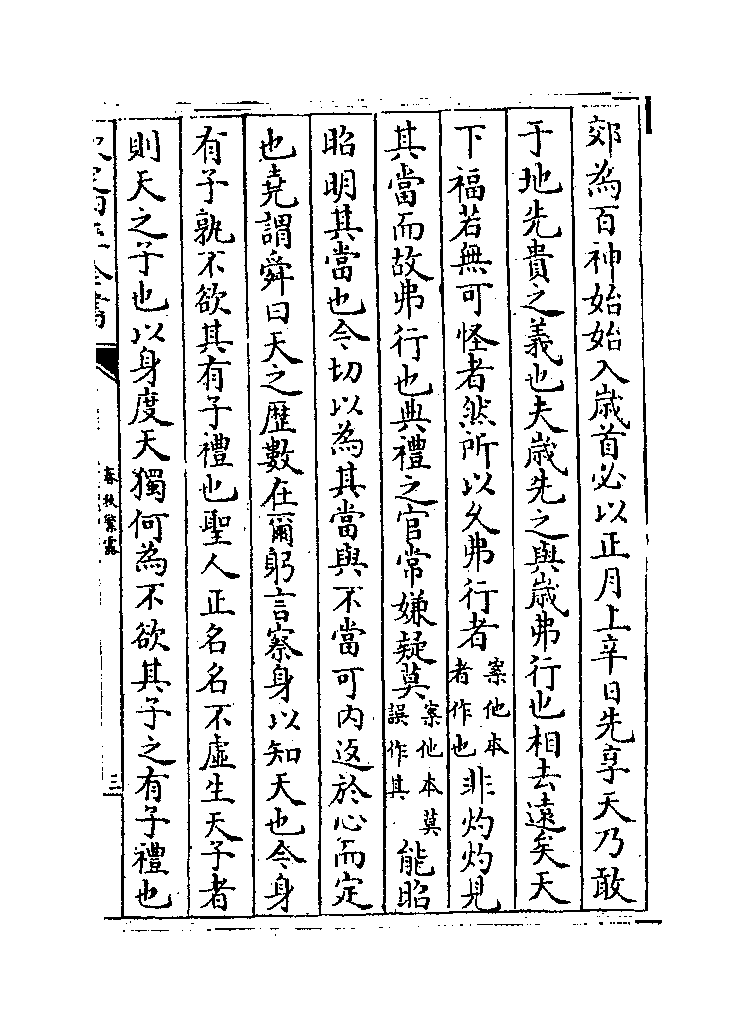 郊為百神始始入歳首必以正月上辛日先享天乃敢
于地先貴之義也夫歳先之與歳弗行也相去遠矣天
下福若無可怪者然所以久弗行者案他本者作也非灼灼見
其當而故弗行也典禮之官常嫌疑莫案他本莫誤作其能昭
昭明其當也今切以為其當與不當可内返於心而定
也堯謂舜曰天之歴數在爾躬言察身以知天也今身
有子孰不欲其有子禮也聖人正名名不虛生天子者
則天之子也以身度天獨何為不欲其子之有子禮也
春秋繁露
三